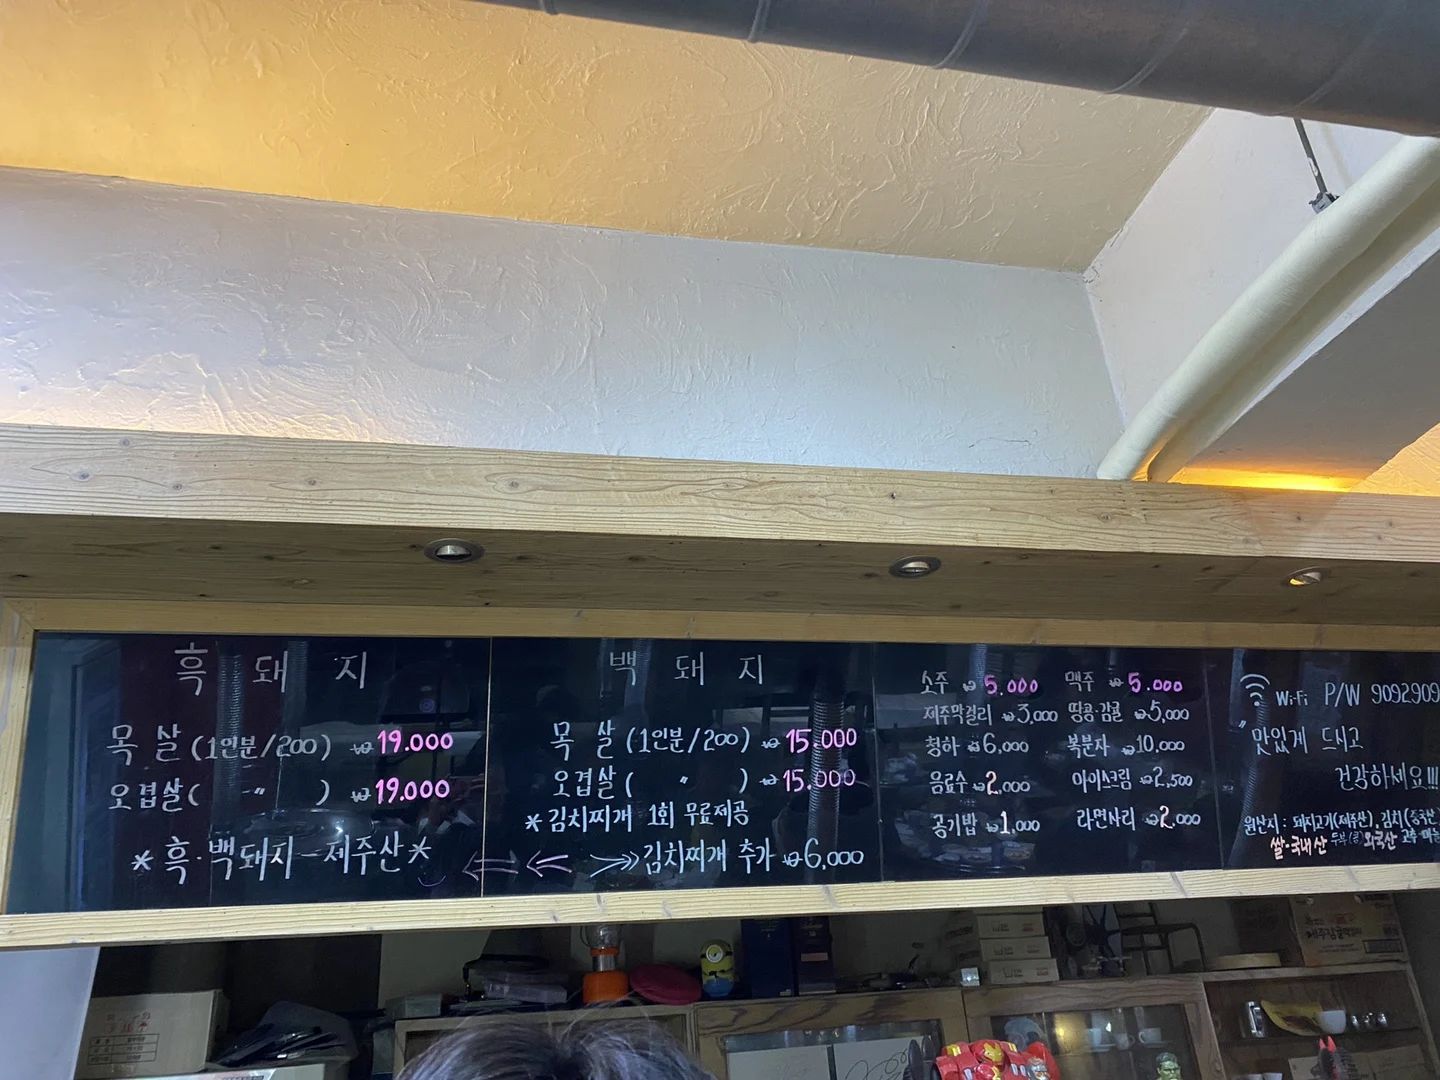 흑 돼 지
목 살 (1인분/200) ₩19.000
오겹살 ( 〃 ) ₩19.000
*흑.백돼지-제주산*
백 돼 지
목 살 (1인분/200) ₩15.000
오겹살 ( 〃 ) ₩15.000
*김치찌개 1회 무료제공
김치찌개 추가 ₩6,000
소주 ₩5.000 맥주 ₩5.000
제주막걸리 ₩3,000 땅콩.감귤 ₩5,000
청하 ₩6,000 복분자 ₩10,000
음료수 ₩2,000 아이스크림 ₩2,500
공기밥 ₩1,000 라면사리 ₩2,000
WiFi P/W 9092909
"맛있게 드시고
건강하세요!!!
원산지: 돼지고기(제주산), 김치(중국산
쌀.국내산 두부(콩)외국산